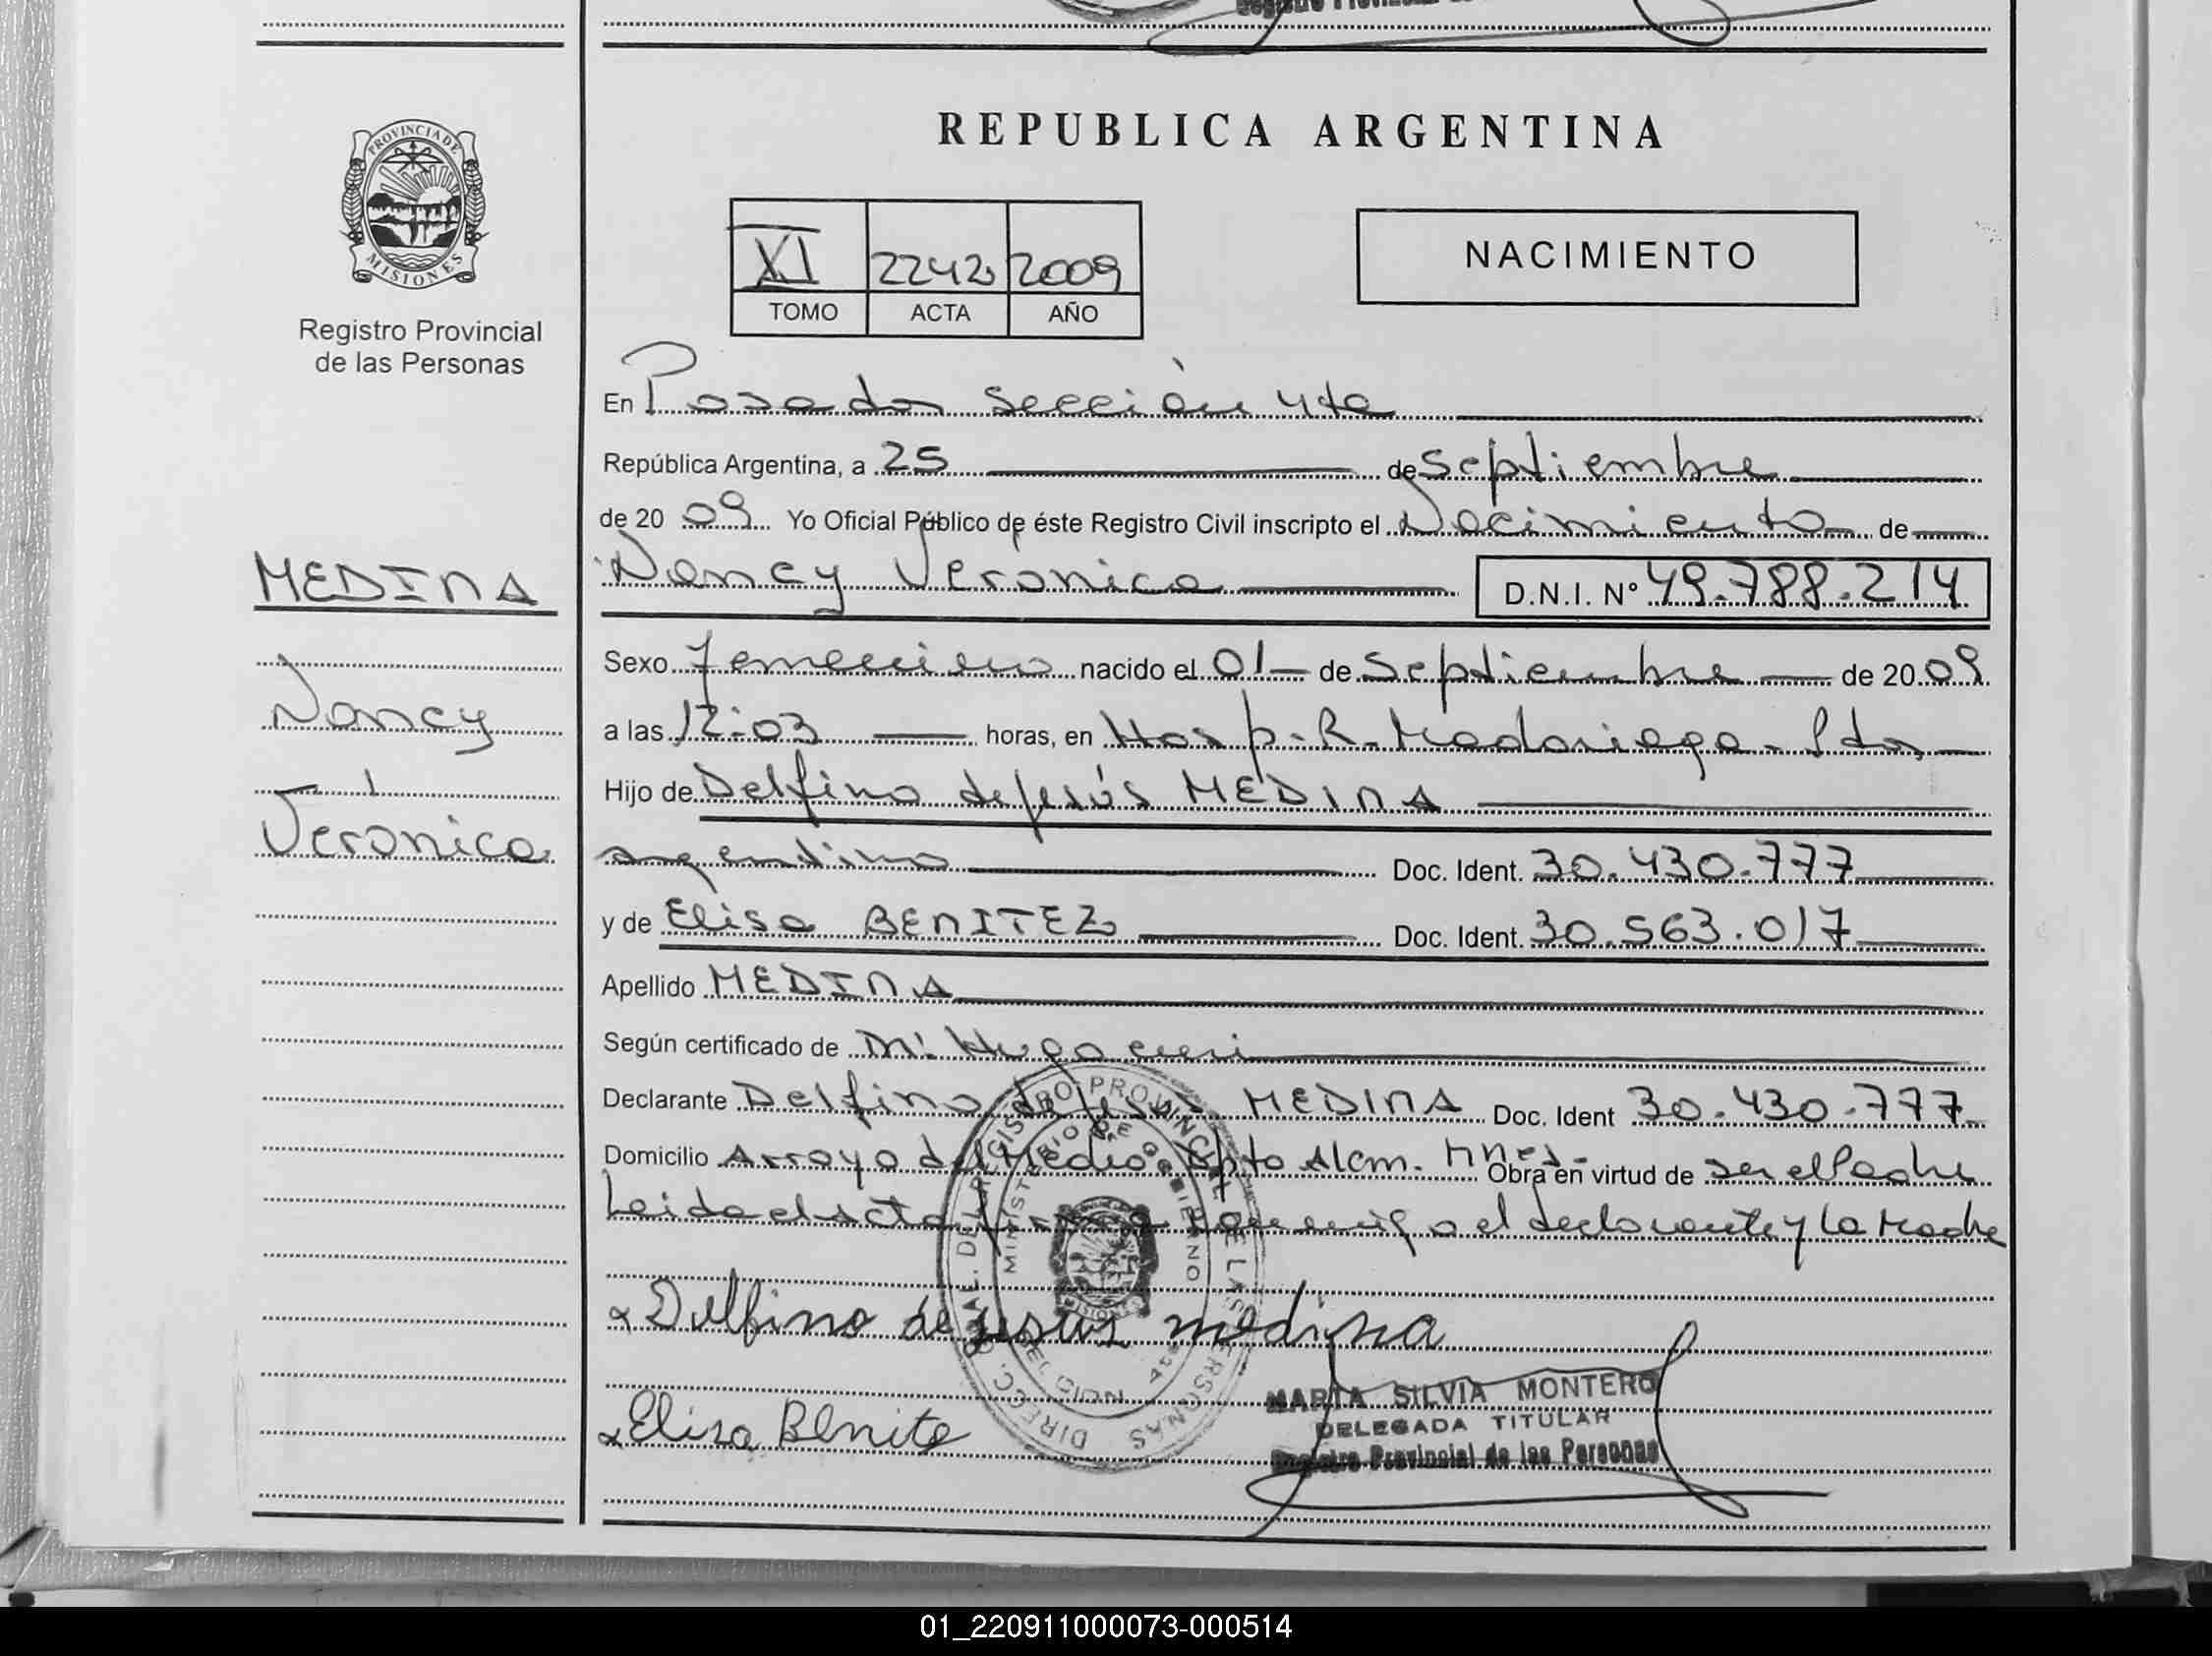 REPUBLICA ARGENTINA
PROVINCIA DE
MISIONES
Registro Provincial
de las Personas
XI 2242 2009
TOMO ACTA AÑO
NACIMIENTO
En Posadas Sección 4ta
República Argentina, a 25 de Septiembre
de 2009 Yo Oficial Público de éste Registro Civil inscripto el Nacimiento de
MEDINA
Nancy Veronica D.N.I. Nº 49.788.214
Sexo femenino nacido el 01 de Septiembre de 2009
Nancy
a las 12:03 horas, en Hosp. R. Madariaga - Pdas
Hijo de Delfino de Jesús MEDINA
Veronica
argentino Doc. Ident. 30.430.777
y de Elisa BENITEZ Doc. Ident. 30.563.017
Apellido MEDINA
Según certificado de Dr. Hugo
Declarante Delfino de Jesus MEDINA Doc. Ident 30.430.777
Domicilio Arroyo del Medio. Dpto Alem. Mnes. Obra en virtud de ser el Padre
Leida el acta firma conmigo el declarante y la Madre
DIRECC. GRAL. DEL REGISTRO PROVINCIAL DE LAS PERSONAS
MINISTERIO DE GOBIERNO
MISIONES
Delfino de Jesus medina
MARTA SILVIA MONTERO
DELEGADA TITULAR
Registro Provincial de las Personas
Elisa Benite
01_220911000073-000514